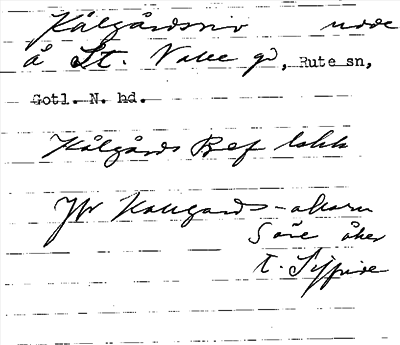 Kålgårdsriv udde
å St. Valle gd, Rute sn,
Gotl. N. hd.
Kålgårds Ref lokk
Jfr Kallgards-akarn
Søre åker
t.